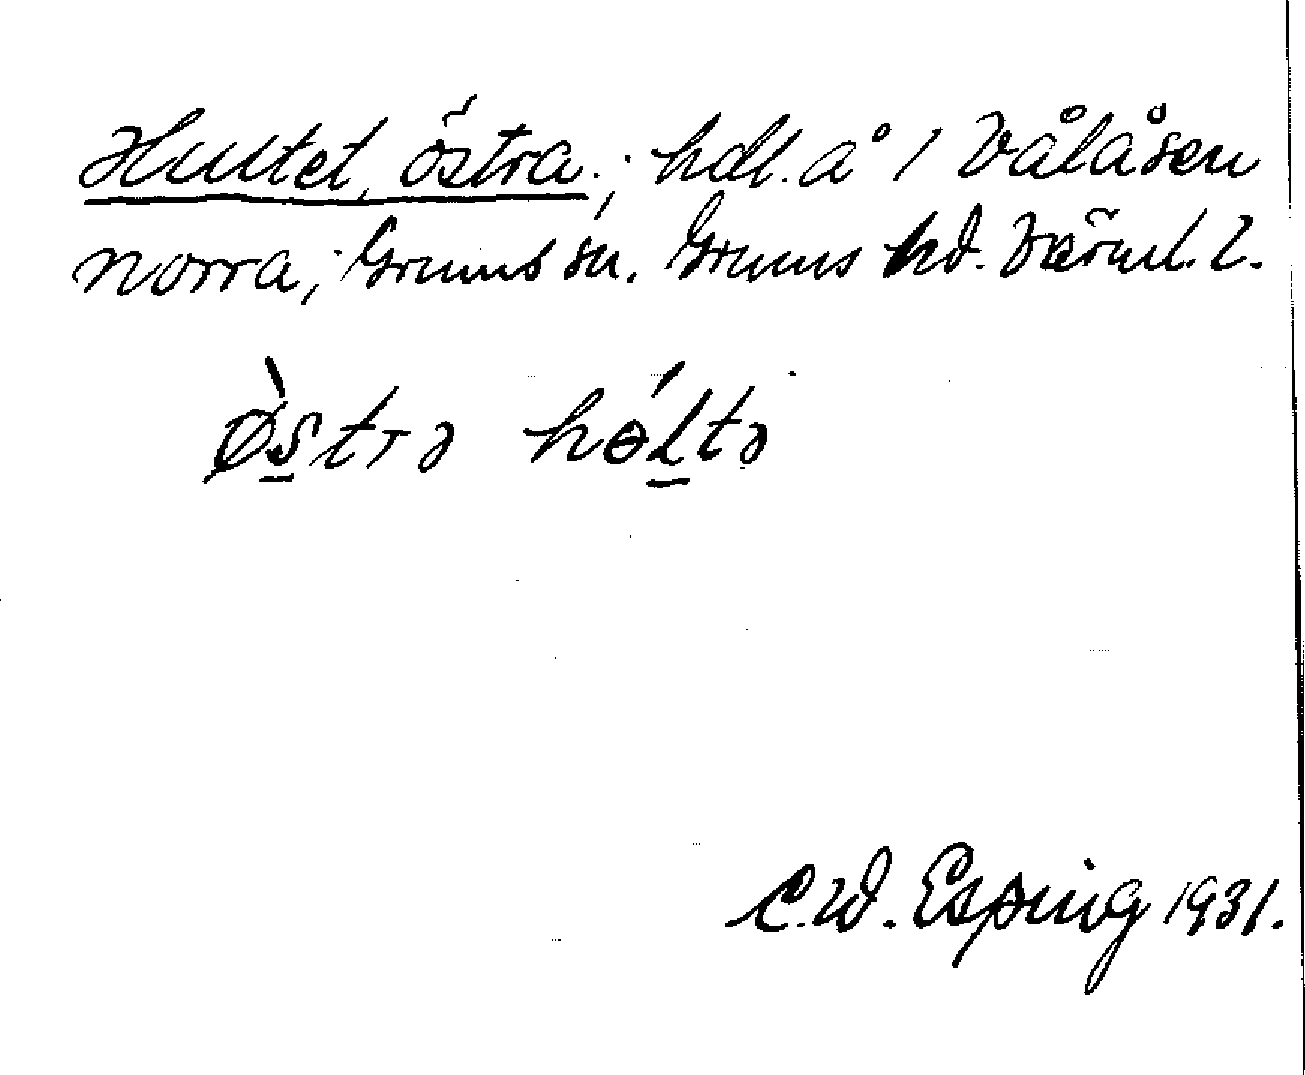 Hultet, östra.; hdl. å 1 Vålåsen
norra; Grums sn. Grums hd. Värml. l.
ø̀s̱trə hɵ́ḻtə
C.W. Esping 1931.